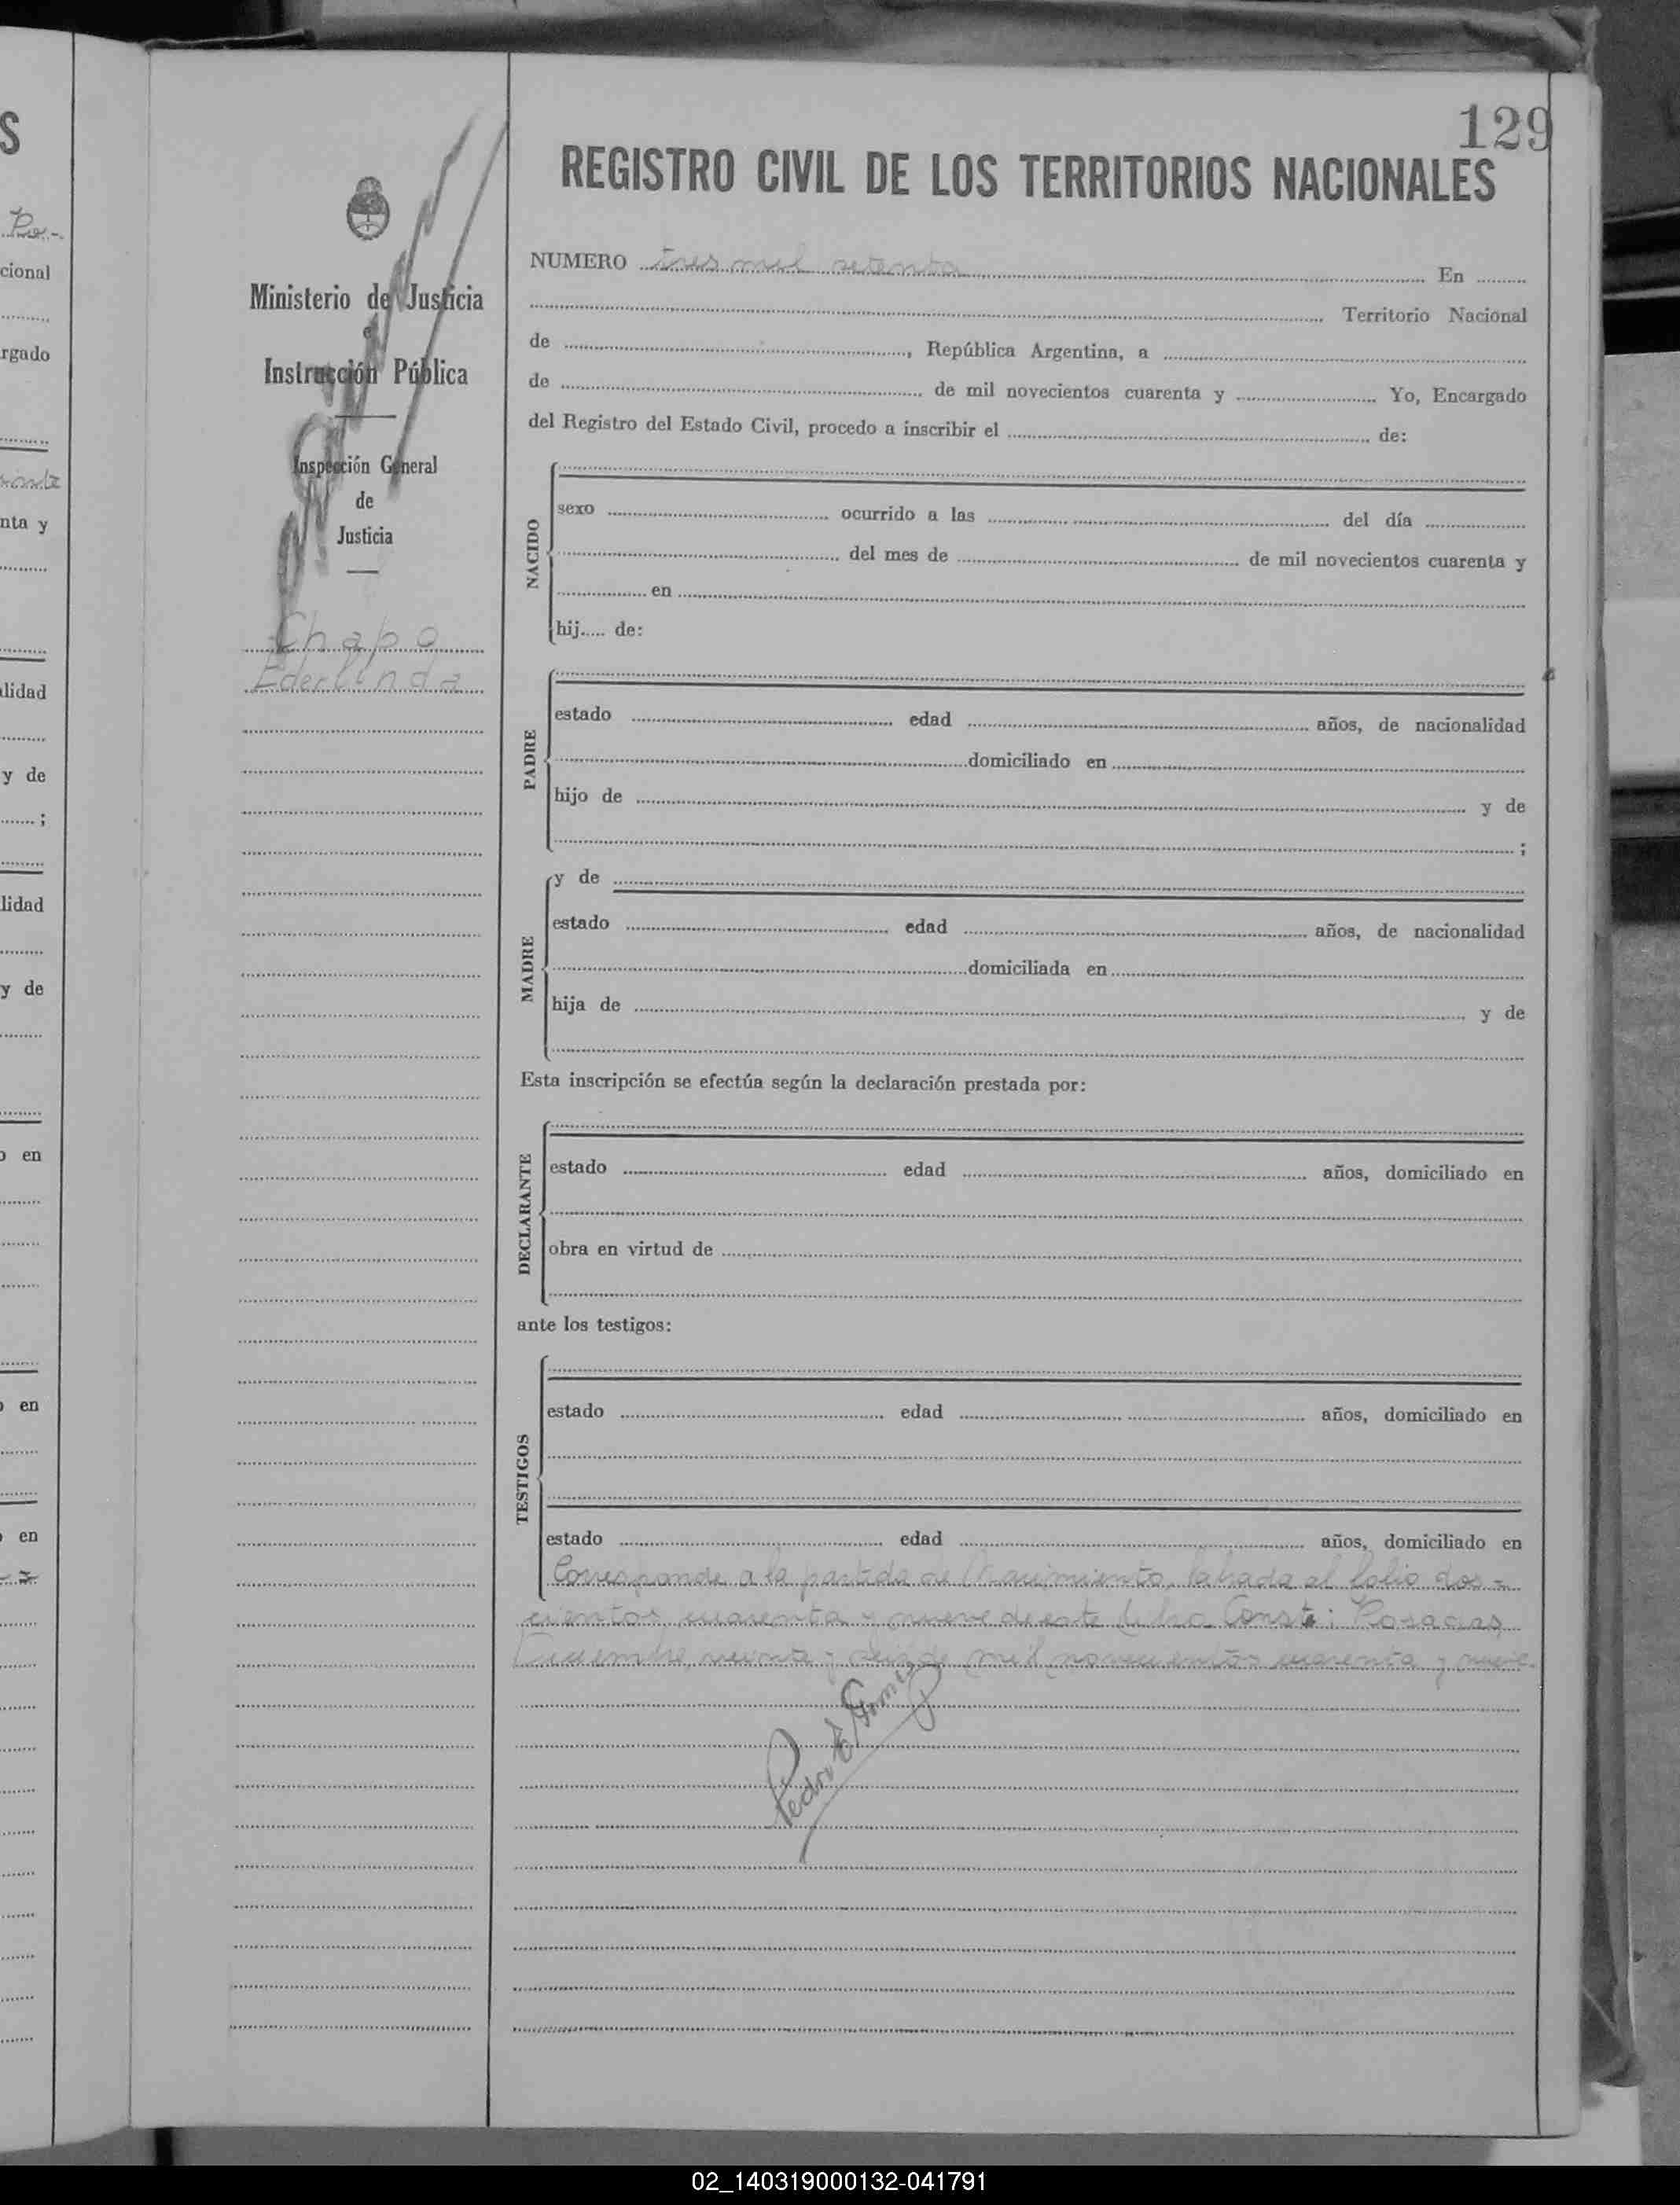 129
REGISTRO CIVIL DE LOS TERRITORIOS NACIONALES
Ministerio de Justicia
e
Instrucción Pública
Inspección General
de
Justicia
Chapo
Ederlinda
NUMERO tres mil setenta En
Territorio Nacional
de , República Argentina, a
de de mil novecientos cuarenta y Yo, Encargado
del Registro del Estado Civil, procedo a inscribir el de:
NACIDO
sexo ocurrido a las del día
del mes de de mil novecientos cuarenta y
en
hij..... de:
PADRE
estado edad años, de nacionalidad
domiciliado en
hijo de y de
;
MADRE
y de
estado edad años, de nacionalidad
domiciliada en
hija de y de
Esta inscripción se efectúa según la declaración prestada por:
DECLARANTE
estado edad años, domiciliado en
obra en virtud de
ante los testigos:
TESTIGOS
estado edad años, domiciliado en
estado edad años, domiciliado en
Corresponde a la partida de Nacimiento, labrada al folio dos-
cientos cuarenta y nueve de este libro Conste: Posadas,
Diciembre, veinte y seis de mil novecientos cuarenta y nueve.
Pedro E Gomez
S
cional
rgado
nta y
lidad
y de
;
lidad
y de
o en
o en
o en
02_140319000132-041791